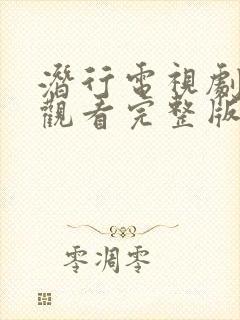 潛行電視劇
觀看完整版
零凋零